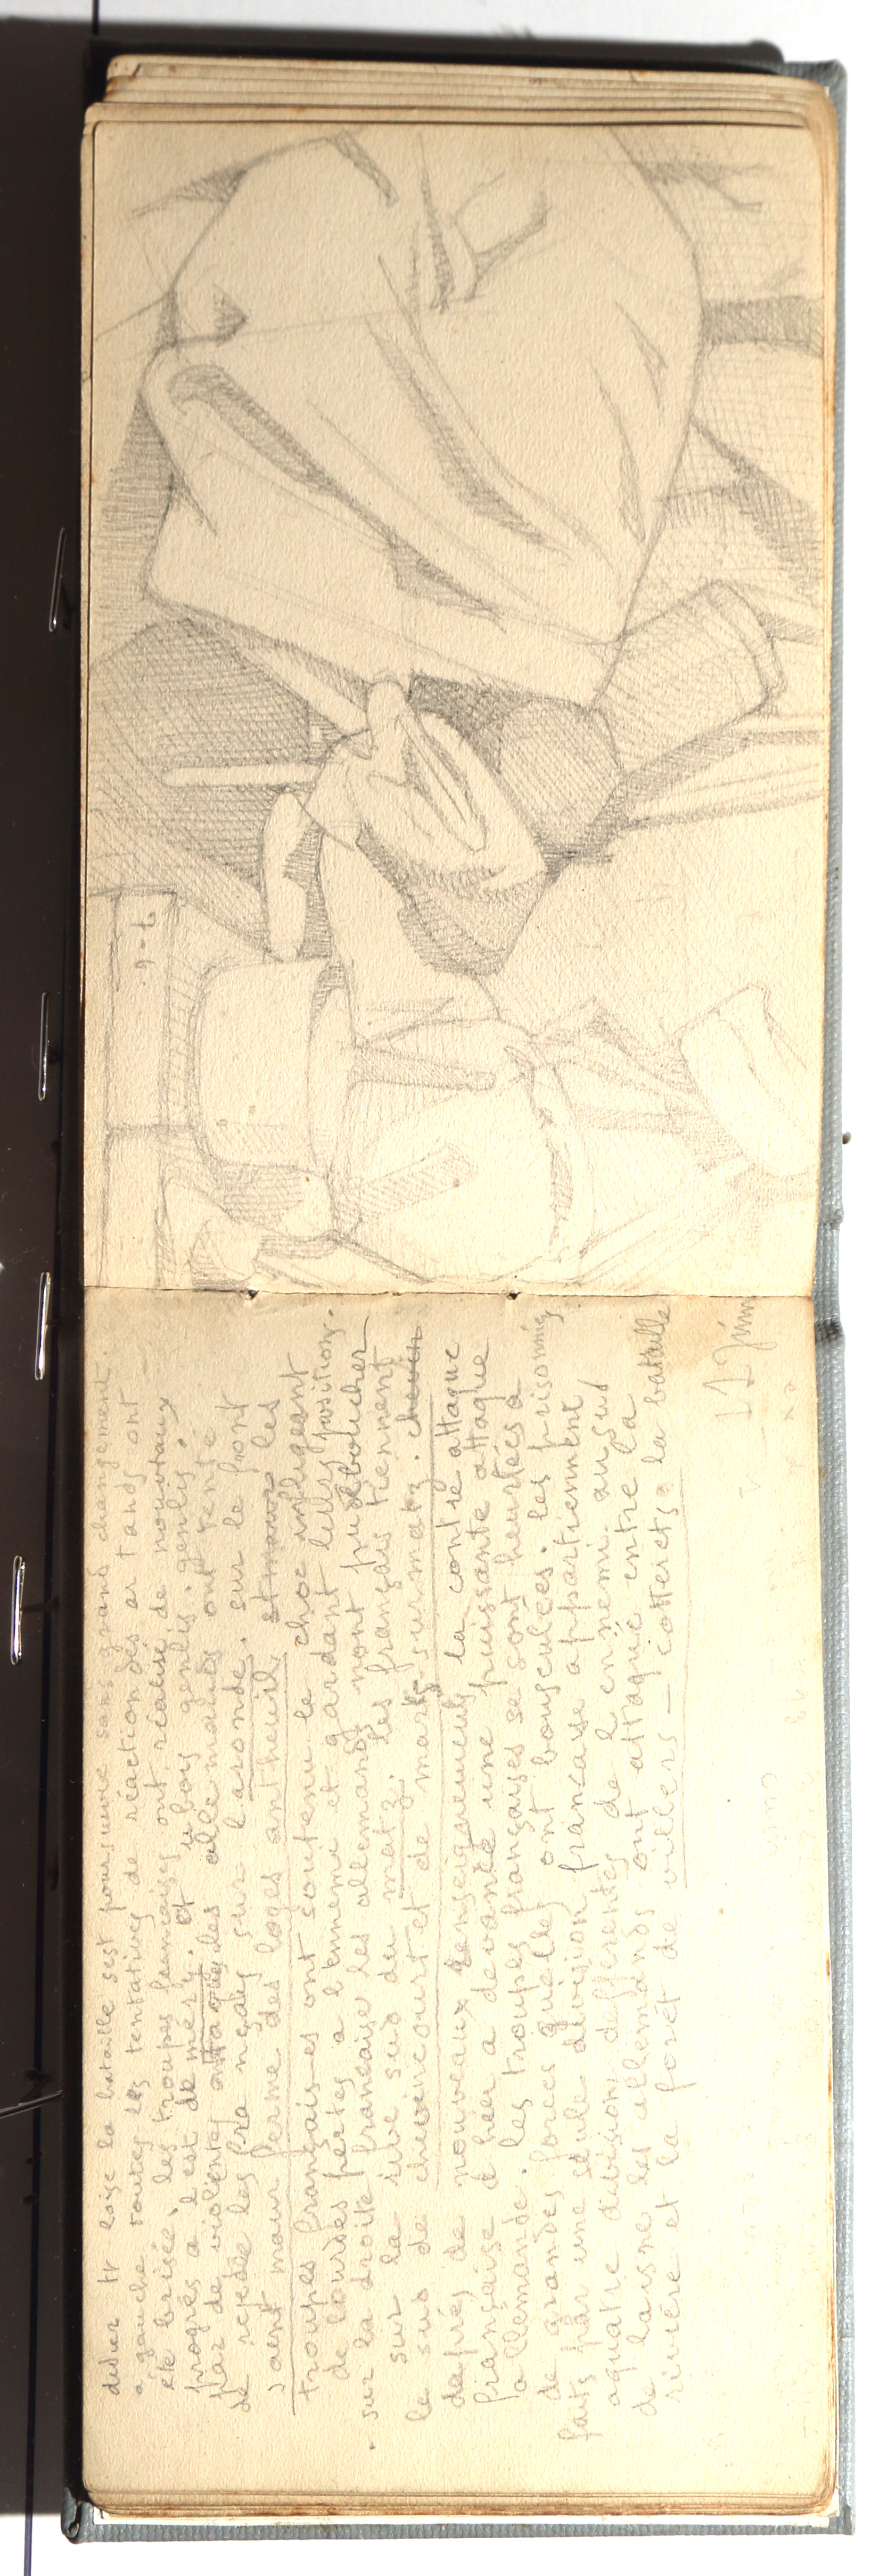 didier et loise la bataille sest poursuivie sans grand changement.
a gauche toutes les tentatives de réaction des artands ont
ete brisée, les troupes francaises ont réalisé de nouveaux
progrès a lest de mery. et u bois genlis. genlis.
par de violentes attaques des allemands ont tenté
de rejetée les français sur laronde. sur le front
saint maur ferme des loges antheuil et maur les
troupes françaises ont soutenu le choc infligeant
de lourdes pertes a lennemi et gardant leurs positions.
. sur la droite francaise les allemands nont pu déboucher
sur la rive sud du matz. les français tiennent
le sud de chevincourt et de marly sur matz. chevin
daprés de nouveaux renseignements la contre attaque
française d hier a devancé une puissante attaque
allemande. les troupes françaises se sont heurtées a
de grandes forces quelles ont bousculées. les prisonnig
faits par une seule division francaise appartiennent
aquatre divisions defferentes de l ennemi. au sud
de laisne les allemands ont attaqué entre la
rivière et la forêt de villers – cotterets. la bataille
12 juin
9-6.